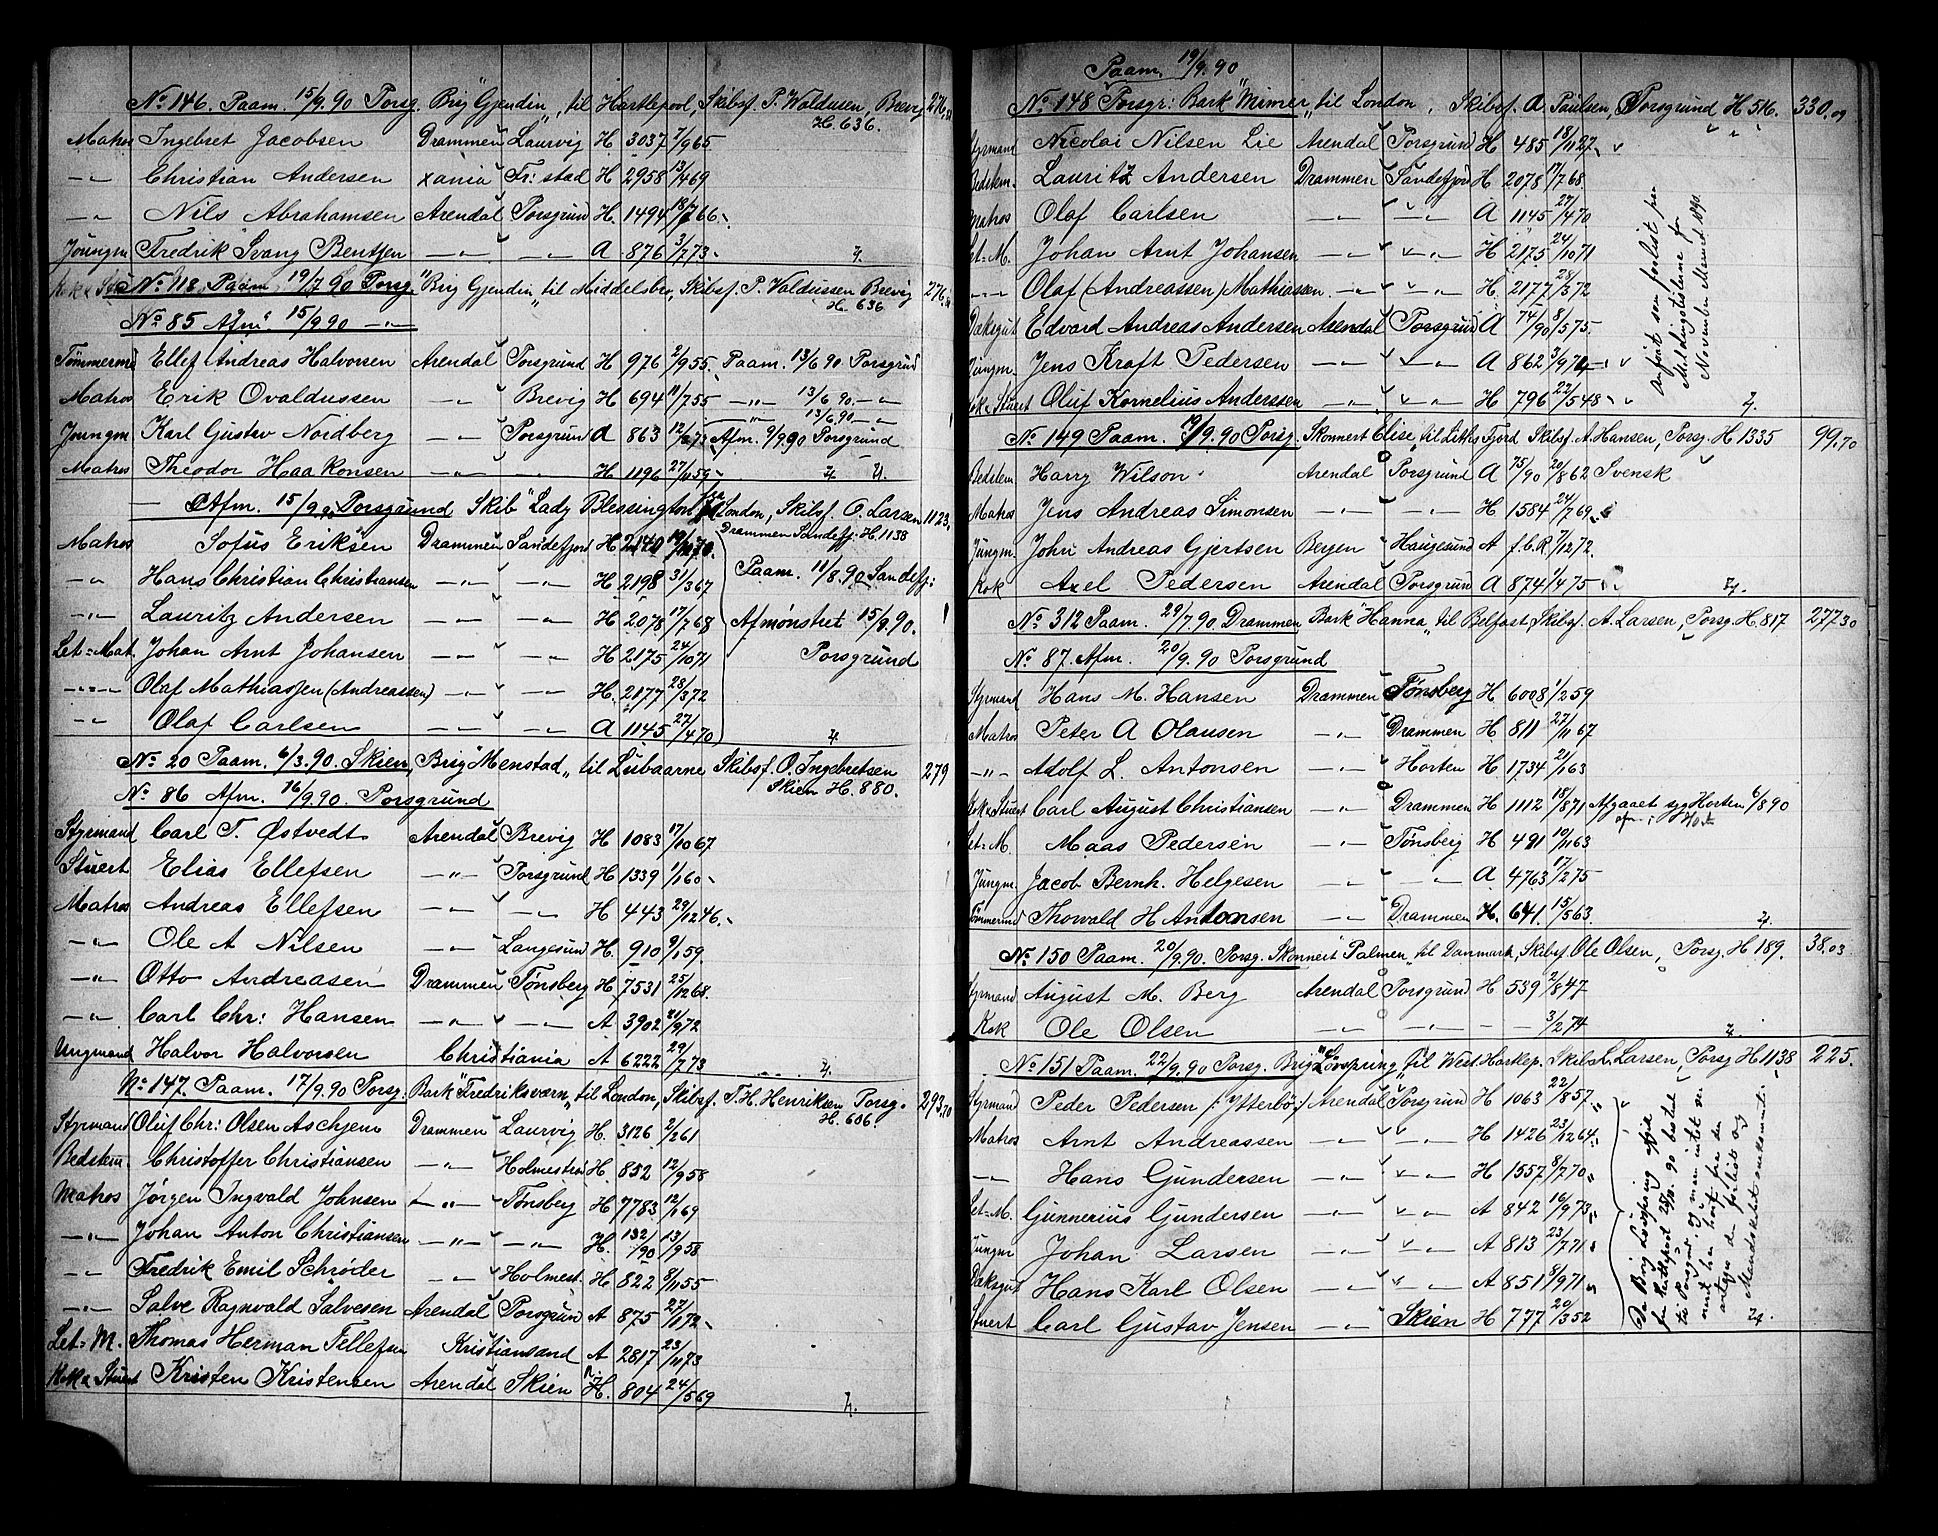 No 146. Paam. 15/9 90 Porsg. Brig "Gjendin" til Hartlepool, Skibsf. P. Waldusen, Brevig 276,
H. 636.
Matros Ingebret Jacobsen Drammen Laurvig H 3037 7/9 65
—"— Christian Andersen Xania Fr:stad H 2958 13/4 69
—"— Nils Abrahamsen Arendal Porsgrund H. 1494 18/7 66
Joungm Fredrik Svang Bentsen —"— " A 876 3/7 73
No 118. Paam 19/7 90 Porsg. "Brig Gjendin" til Middelsbro, Skibsf. P. Waldussen Brevig 276
H. 636
No 85 Afm. 15/9 90 —"—
Tømmermd Ellef Andreas Halvorsen Arendal Porsgrund H 976 2/9 55 Paam. 13/6 90 Porsgrund
Matros Erik Ovaldussen —"— Brevig H 694 11/7 55 —"— 13/6 90 —"—
—"— 13/6 90 —"—
Joungm Karl Gustav Nordberg —"— Porsgrund A 863 12/ 73 Afm. 9/9 90 Porsgrund
Matros Theodor Haakonsen —"— —"— H 1196 27/11 59
— Afm. 15/9 90 Porsgrund Skib "Lady Blessington" fra London, Skibsf. O. Larsen 1123
Drammen Sandefj. H. 1138
Matros Sofus Eriksen Drammen Sandefjord H 2140 19/ 70
—"— Hans Christian Christiansen —"— —"— H 2198 31/3 67 Paam. 11/8. 90 Sandefj:
—"— Lauritz Andersen —"— —"— H 2078 17/7 68 Afmønstret 15/9. 90.
Let-Mat. Johan Arnt Johansen —"— —"— H 2175 24/10 71 Porsgrund
—"— Olaf Mathiassen (Andreassen) —"— —"— H. 2177 28/3 72
—"— Olaf Carlsen —"— —"— A 1145 27/4 70
No 20 Paam. 6/3. 90. Skien, Brig "Menstad" til Lübaarne Skibsf. O. Ingebretsen 279
Skien H. 880.
No 86 Afm. 16/9. 90. Porsgrund
Styrmand Carl T. Østvedt Arendal Brevig H 1083 17/10 67
Stuert Elias Ellefsen —"— Porsgrund H 1339 1/1 60
Matros Andreas Ellefsen —"— —"— H 443 29/12 46
—"— Ole A Nilsen —"— Langesund H. 910 9/1 59.
—"— Otto Andreasen Drammen Tønsberg H 7531 25/12 68.
—"— Carl Chr: Hansen —"— —"— A 3902 20/9 72
Ungmand Halvor Halvorsen Christiania A 6222 29/7 73
No 147. Paam. 17/9. 90 Porsg. Bark "Fredriksværn" til London, Skibsf. T. H. Henriksen Porsg. 293,70
H. 606.
Styrmand Oluf Chr: Olsen Aschjem Drammen Laurvig H. 3126 2/2 61
Bedstem. Christoffer Christiansen —"— Holmestrand H. 852 12/9 58
Matros Jørgen Ingvald Johnsen —"— Tønsberg H 7783 12/1 69
—"— Johan Anton Christiansen —"— —"— H. 132/90 13/9 58
—"— Fredrik Emil Schrøder —"— Holmest. H 822 8/11 55
—"— Salve Ragnvald Salvesen Arendal Porsgrund A 875 27/1 72
Let-M. Thomas Herman Tellefsen Kristiansand A 2817 23/11 73
Kok & Stuert Kristen Kristensen Arendal Skien H. 804 24/5 69
Paam. 19/9. 90
No 148 Porsgr: Bark "Mimer" til London, Skibsf. A. Paulsen, Porsgrund H 516. 330.09
Styrmand Nicolai Nilsen Lie Arendal Porsgrund H 485 18/11 27
Bedstem. Lauritz Andersen Drammen Sandefjord H 2078 17/7 68
Matros Olaf Carlsen —"— —"— A 1145 27/4 70
Let-M. Johan Arnt Johansen —"— —"— H 2175 24/10 71
—"— Olaf (Andreassen) Mathiassen —"— —"— H 2177 28/3 72
Dæksgut Edvard Andreas Andersen Arendal Porsgrund A 74/90 8/5 75
Jüngm. Jens Kraft Pedersen —"— —"— A 862 3/9 74
Kok & Stuert Oluf Kornelius Anderssen —"— —"— H 796 22/5 48
Anført som forlist paa
November Maaned 1890.
No 149 Paam. 19/9. 90 Porsg. Skonnert Elise til Liths Fjord Skibsf. A. Hansen, Porsg. H 1335 99.70
Bedstem Harry Wilson Arendal Porsgrund A 75/90 20/8 62 Svensk
Matros Jens Andreas Simonsen —"— —"— H 1584 24/7 69
Jüngm. John Andreas Gjertsen Bergen Haugesund A f.C.R 7/12 72.
Kok Axel Pedersen Arendal Porsgrund A 874 1/4 75
No 312 Paam. 29/7. 90 Drammen Bark "Hanna" til Belfast, Skibsf. A. Larsen, Porsg. H. 817 277.30
No 87. Afm. 20/9. 90 Porsgrund
Styrmand Hans M. Hansen Drammen Tønsberg H 6008 1/2 59
Matros Peter A Olausen —"— Drammen H 811 27/11 67
—"— Adolf L. Antonsen —"— Horten H 1734 21/1 63
Kok & Stuert Carl August Christiansen —"— Drammen H 1112 18/8 71 Afgaaet syg Horten 6/8 90
Let-M. Maas Pedersen —"— Tønsberg H 491 10/11 63
Jüngm. Jacob Bernh. Helgesen —"— —"— A 4763 17/2 75
Tømmermd Thorvald H Antonsen —"— Drammen H. 641. 15/5 63.
No 150 Paam. 20/9. 90. Porsg. Skonnert "Palmen" til Danmark, Skibsf. Ole Olsen, Porsg. H 189. 38.03
Styrmand August M. Berg Arendal Porsgrund H 539 2/8 47
Kok Ole Olsen —"— —"— — — 3/2 74
No 151 Paam. 22/9. 90 Porsg. Brig "Løvspring" til West Hartlep. Skibsf. L. Larsen, Porsg H 1138 225.
Styrmand Peder Pedersen (:Ytterbö:) Arendal Porsgrund H 1063 22/8 57
Matros Arnt Andreassen —"— —"— H 1426 23/12 64
—"— Hans Gundersen —"— —"— H 1557 8/7 70
Let-M. Gunnerius Gundersen —"— —"— A 842 16/9 73
Jüngm Johan Larsen —"— —"— A 813 23/7 71
Dæksgut Hans Karl Olsen —"— —"— A 851 8/9 71
Stuert Carl Gustav Jensen —"— Skien H 777 20/3 52
Da Brig Løvspring afgik
fra Hartlepool 25/10. 90 bestemt
til Porsgrund, og man intet se-
nere har hørt fra den
antages den forliist og
Mandskabet omkommet